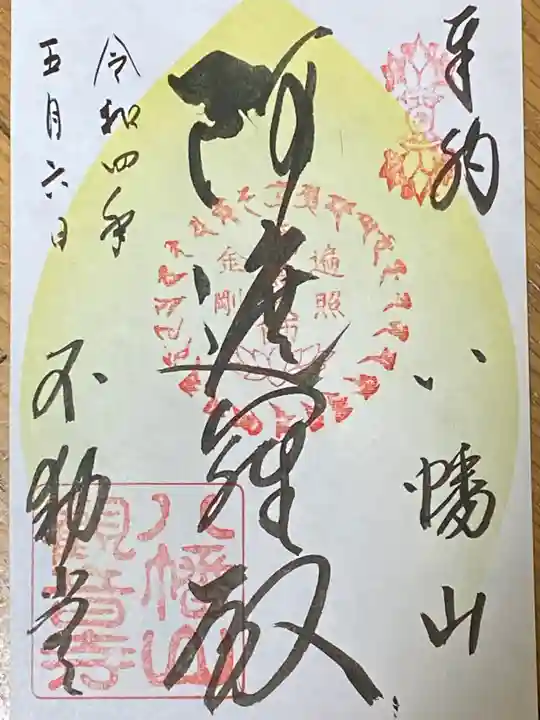 奉納
八幡山
遍照
金剛
阿遮羅殿
令和四年
五月六日
不動堂
八幡山
観音寺